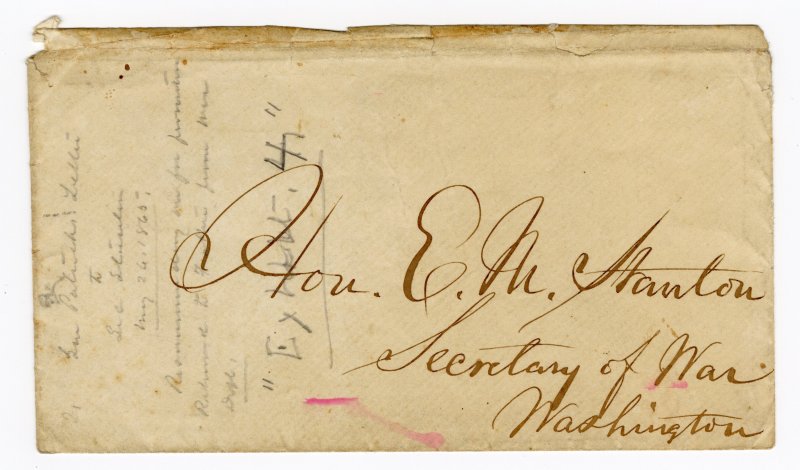 Hon. E. M. Stanton
Secretary of War
Washington
Gen Patrick's Letter
to
Sec Stanton
May 26. 1865.
Recommending me for promotion
Returned to from War
Dept.
"Exhibit. H"